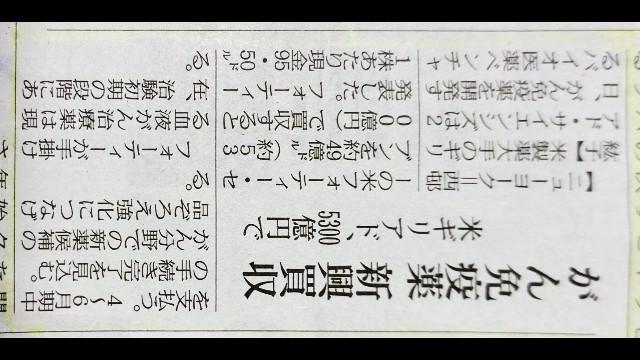 がん免疫薬 新興買収
米ギリアド、5300億円で
【ニューヨーク=西邨
紘子】米製薬大手のギリ
アド・サイエンシズは2
日、がん免疫薬を開発す
るバイオ医薬ベンチャ
ーの米フォーティー・セ
ブンを約49億㌦(約53
00億円)で買収すると
発表した。フォーティー
1株あたり現金95・50㌦
を支払う。4〜6月期中
の手続き完了を見込む。
がん分野での新薬候補の
品ぞろえ強化につなげ
る。
フォーティーが手掛け
る血液がん治療薬は現
在、治験初期の段階にあ
る。